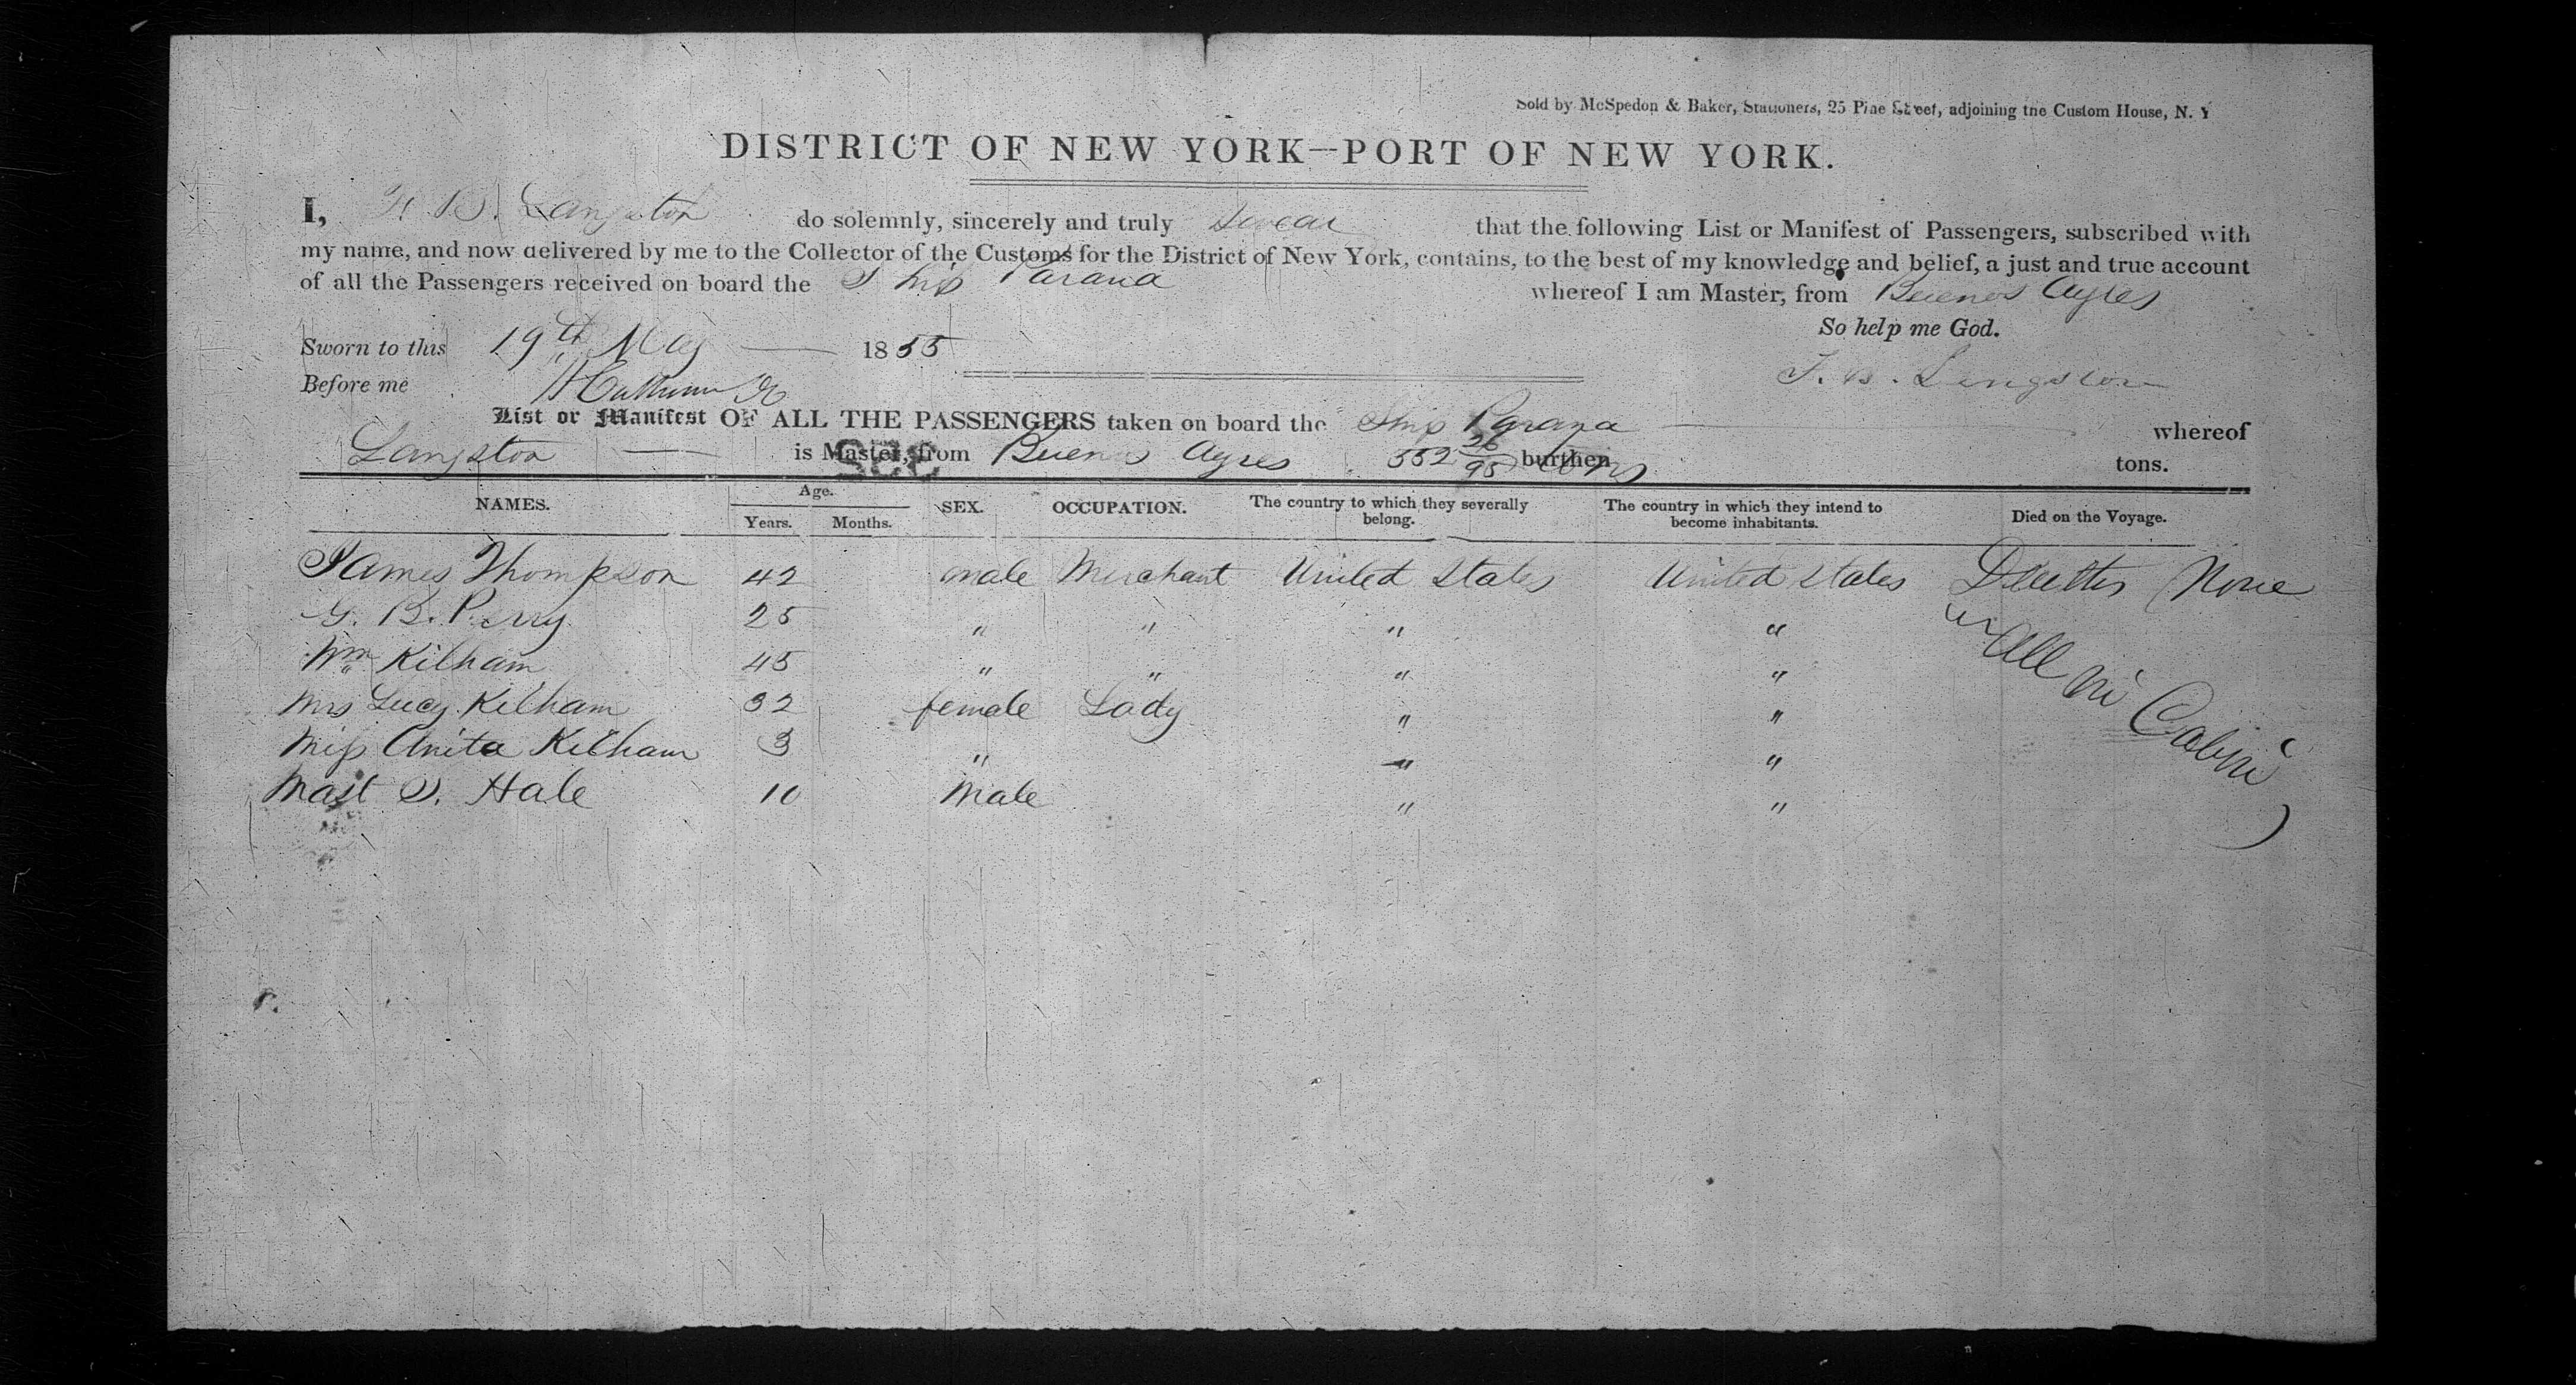 Sold by McSpedon & Baker, Stationers, 25 Pine Street, adjoining the Custom House, N. Y
DISTRICT OF NEW YORK—PORT OF NEW YORK.
I, B. Langston do solemnly, sincerely and truly swear that the following List or Manifest of Passengers, subscribed with
my name, and now delivered by me to the Collector of the Customs for the District of New York, contains, to the best of my knowledge and belief, a just and true account
of all the Passengers received on board the Ship Parana whereof I am Master, from Buenos Ayres
So help me God.
Sworn to this 19th May 1855
Before me
B. Langston
List or Manifest OF ALL THE PASSENGERS taken on board the Ship Parana whereof
Langston is Master, from Buenos Ayres 552 26/95 burthen tons tons.
NAMES. Age. Years. Months. SEX. OCCUPATION. The country to which they severally belong. The country in which they intend to become inhabitants. Died on the Voyage.
James Thompson 42 male Merchant United States United States Deaths None
G. B. Perry 25 " " " "
Wm Kilham 45 " " " "
Mrs Lucy Kilham 32 female Lady " "
Miss Anita Kilham 3 " " "
Mast S. Hale 10 Male " "
All in Cabin